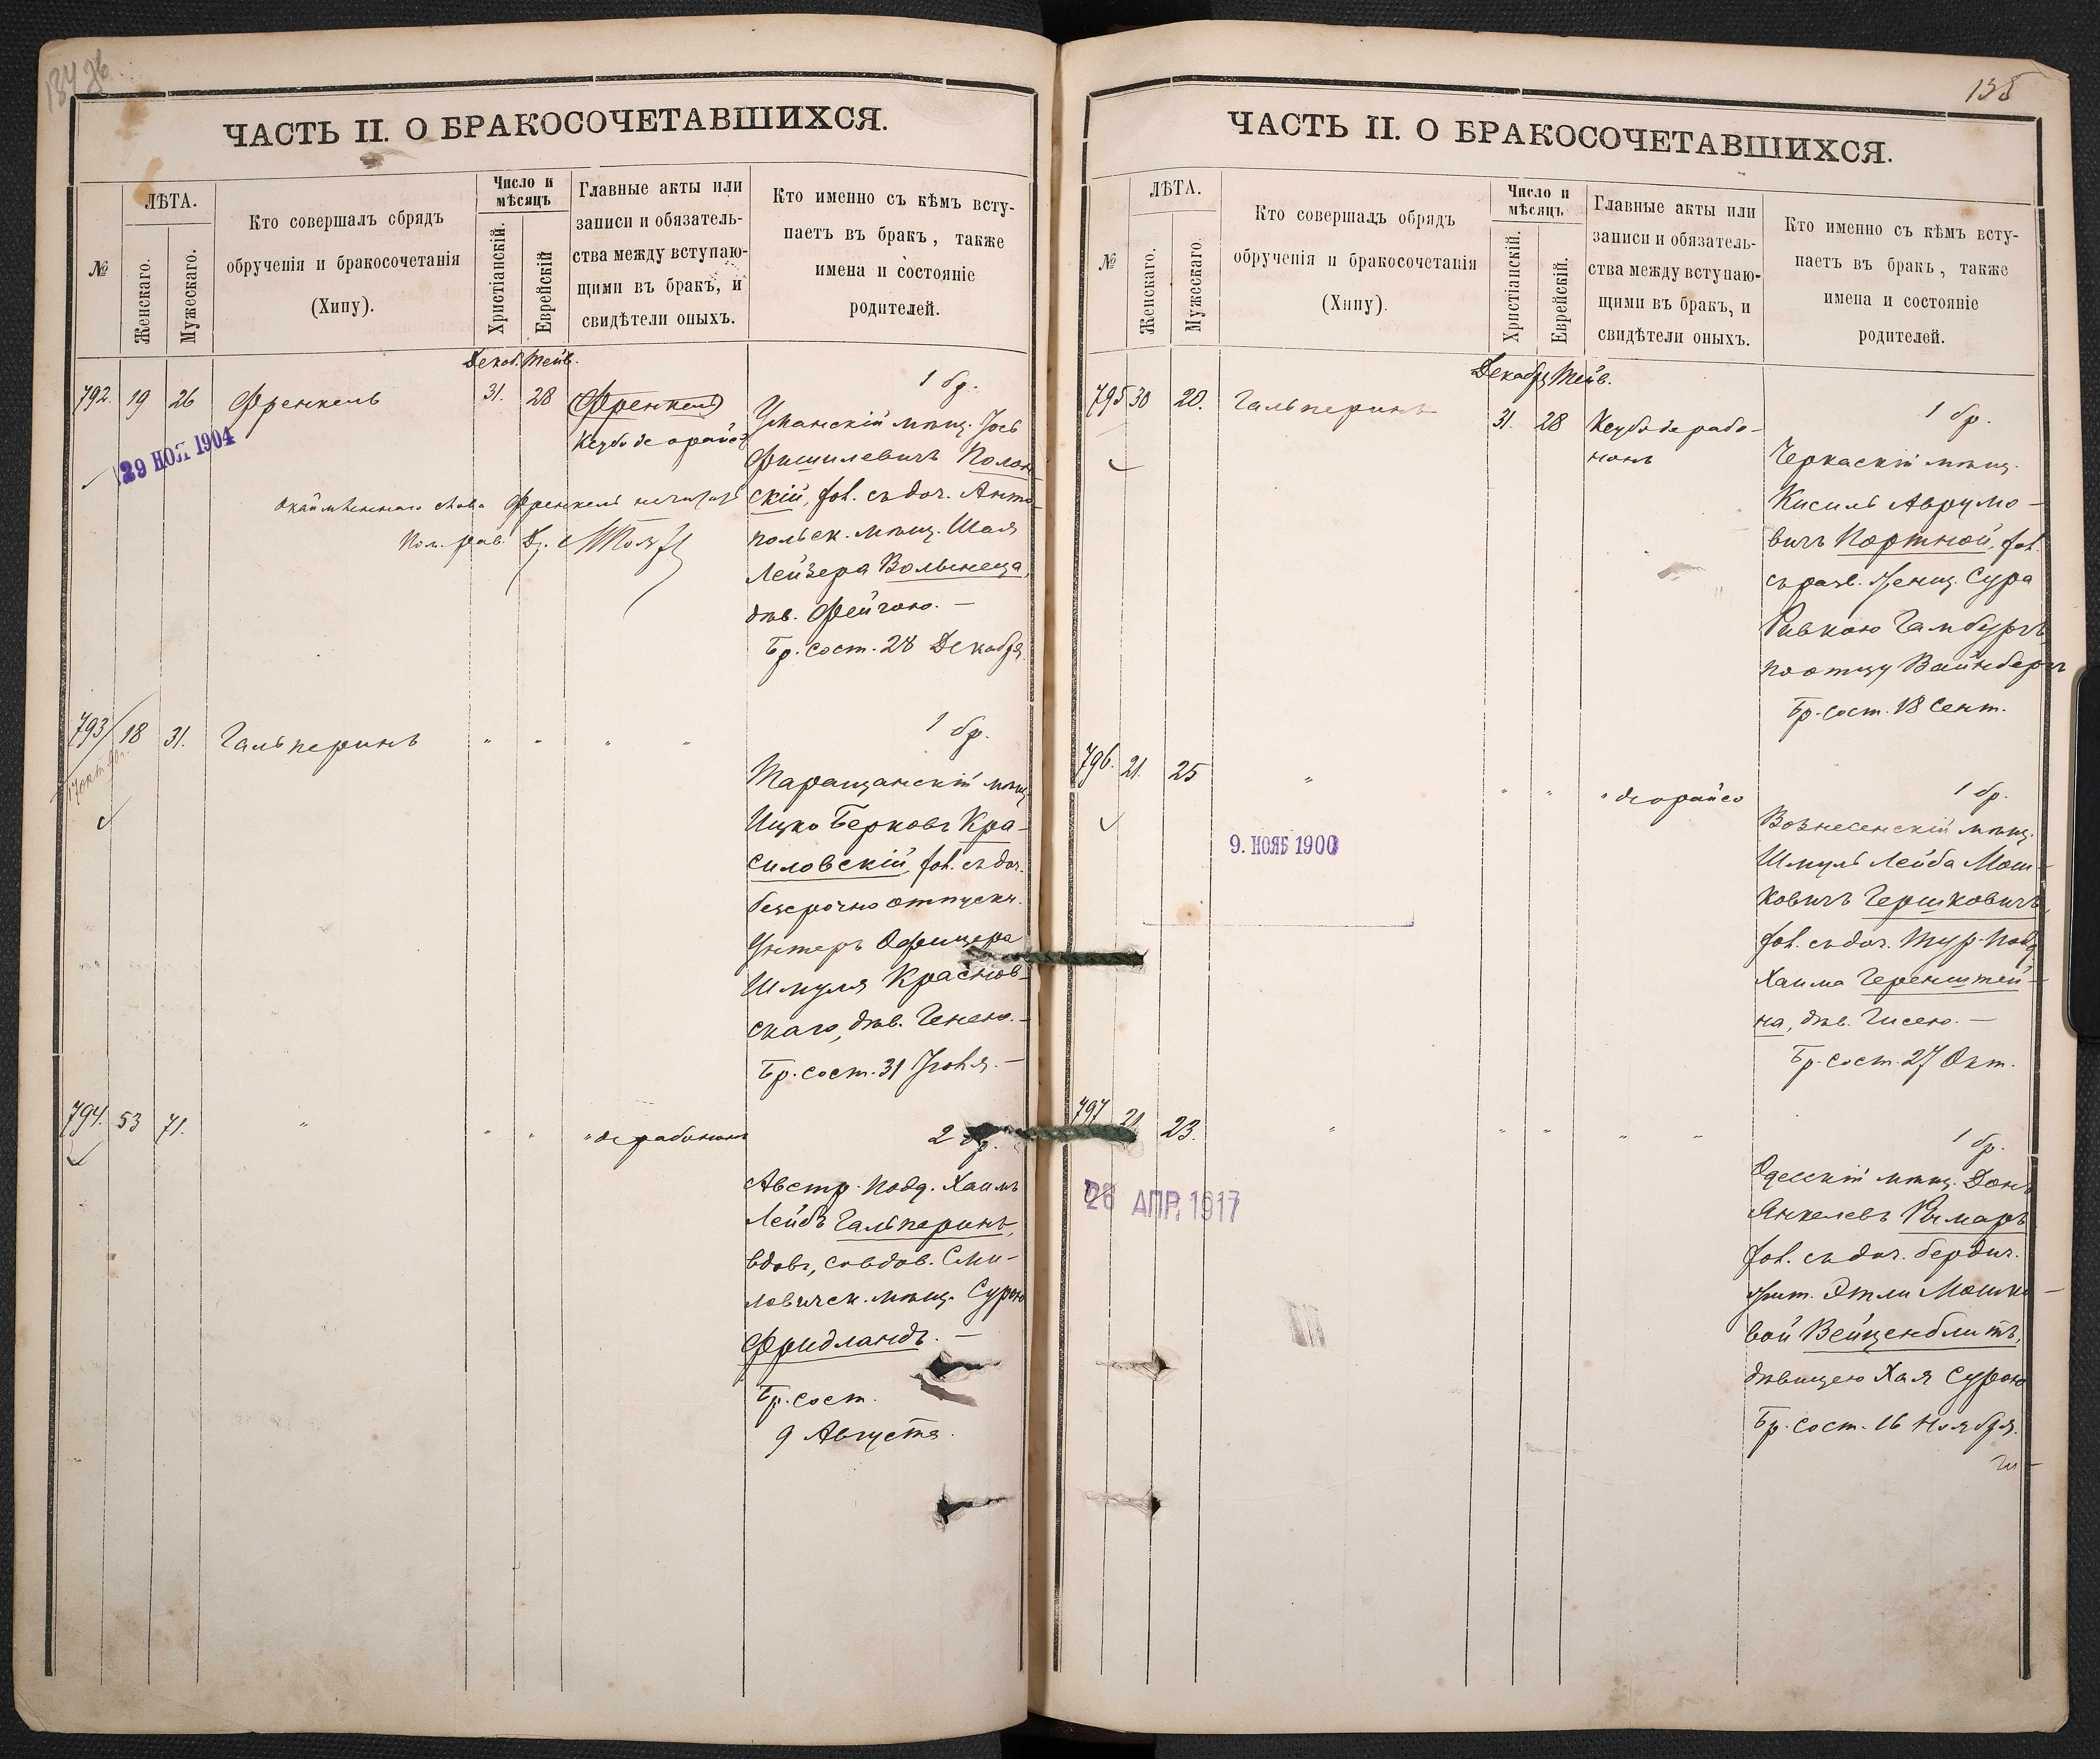 ЧАСТЬ II. О БРАКОСОЧЕТАВШИХСЯ.
№
ЛѢТА.
Женскаго.
Мужескаго.
Кто совершалъ обрядъ
обрученія и бракосочетанія
(Хипу).
Число и
мѣсяцъ
Христіанскій.
Еврейскій
Главные акты или
записи и обязатель-
ства между вступаю-
щими въ бракъ, и
свидѣтели оныхъ.
Кто именно съ кѣмъ всту-
паетъ въ бракъ, также
имена и состояніе
родителей.
Декаб. Тейв.
792. 19 26 Френкель 31. 28 Френкель
Кезубъ деорайсо
29 НОЯ 1904
1 бр.
Уманскій мѣщ. Іось
Фишилевичъ Полон-
скій, хол. съ доч. Анто-
польск. мѣщ. Шая
Лейзера Волынеца,
дѣв. Фейгою. —
Бр. сост. 28 Декабря.
Окаймленнаго слова Френкель не читать
Пом. рав.
793 18 31. Гальперинъ " " " "
1 бр.
Таращанскій мѣщ.
Ицко Берковъ Кра-
силовскій, хол. съ доч.
безсрочно отпускн.
Унтеръ Офицера
Шмуля Краснов-
скаго, дѣв. Генею. —
Бр. сост. 31 Іюля. —
794. 53 71. " " " " дерабононъ
2 бр.
Австр. подд. Хаимъ
Лейбъ Гальперинъ,
вдов., съ вдов. Сми-
ловичск. мѣщ. Сурою
Фридландъ. —
Бр. сост.
9 Августа.
135
ЧАСТЬ II. О БРАКОСОЧЕТАВШИХСЯ.
№
ЛѢТА.
Женскаго.
Мужескаго.
Кто совершалъ обрядъ
обрученія и бракосочетанія
(Хипу).
Число и
мѣсяцъ
Христіанскій.
Еврейскій.
Главные акты или
записи и обязатель-
ства между вступаю-
щими въ бракъ, и
свидѣтели оныхъ.
Кто именно съ кѣмъ всту-
паетъ въ бракъ, также
имена и состояніе
родителей.
Декабр. Тейв.
795 30 20. Гальперинъ 31. 28 Кезубъ дерабо-
нонъ
1 бр.
Черкаскій мѣщ.
Кисиль Аврумо-
вичъ Портной, хол.
съ разв. женщ. Сура
Ривкою Гамбургъ
по отцу Вайнбергъ
Бр. сост. 18 Сент.
796. 21. 25 " " " " деорайсо
9. НОЯБ 1900
1 бр.
Вознесенскій мѣщ.
Шмуль Лейба Мош-
ковичъ Гершковичъ,
хол. съ доч. Тур. подд.
Хаима Геренштей-
на, дѣв. Гисею. —
Бр. сост. 27 Окт.
797 21 23. " " " " "
26 АПР. 1917
1 бр.
Одесскій мѣщ. Донъ
Янкелевъ Рымаръ
хол. съ доч. бердич.
жит. Этли Мошко-
вой Вейценблитъ,
дѣвицею Хая Сурою
Бр. сост. 16 Ноября.